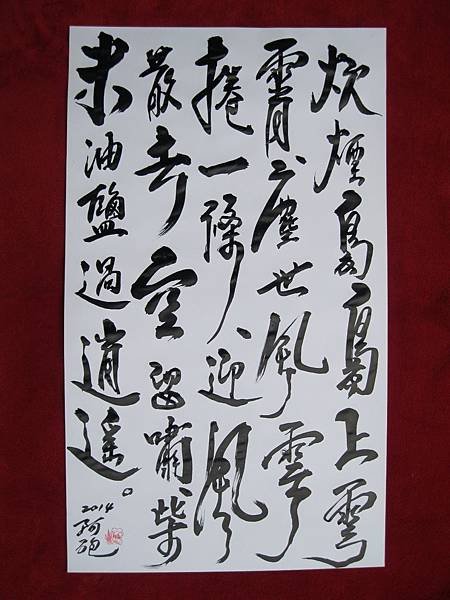 炊煙裊裊上雲
霄塵世風雲
捲一條、迎風
散去空留嘯、柴
米油鹽過逍遙。
2014
阿砲